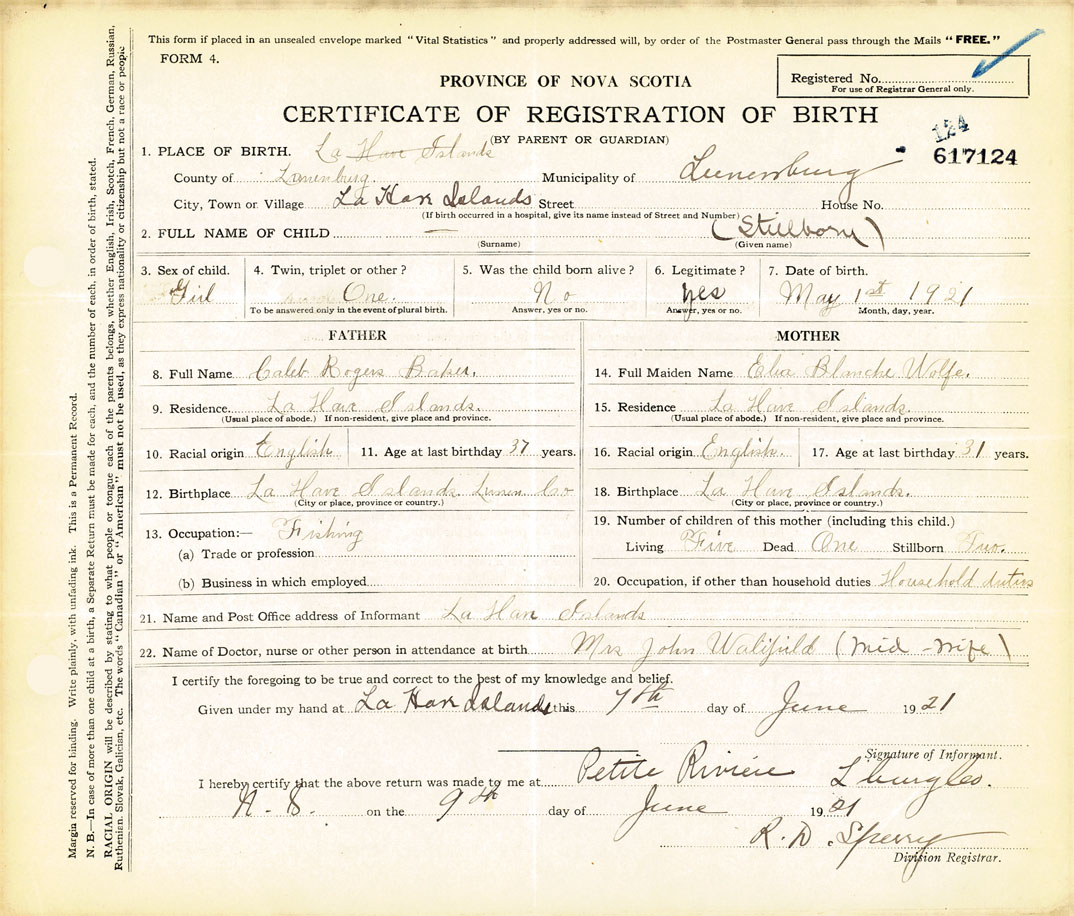 This form if placed in an unsealed envelope marked "Vital Statistics" and properly addressed will, by order of the Postmaster General pass through the Mails "FREE."
FORM 4.
Registered No.
For use of Registrar General only.
PROVINCE OF NOVA SCOTIA
CERTIFICATE OF REGISTRATION OF BIRTH
(BY PARENT OR GUARDIAN)
124
617124
1. PLACE OF BIRTH. La Have Islands
County of Lunenburg Municipality of Lunenburg
City, Town or Village La Have Islands Street House No.
(If birth occurred in a hospital, give its name instead of Street and Number)
2. FULL NAME OF CHILD — (Stillborn)
(Surname) (Given name)
3. Sex of child. 4. Twin, triplet or other? 5. Was the child born alive? 6. Legitimate? 7. Date of birth.
Girl One. No yes May 1st 1921
To be answered only in the event of plural birth. Answer, yes or no. Answer, yes or no. Month, day, year.
FATHER
8. Full Name Caleb Rogers Baker.
9. Residence La Have Islands.
(Usual place of abode.) If non-resident, give place and province.
10. Racial origin English 11. Age at last birthday 37 years.
12. Birthplace La Have Islands Lunen Co
(City or place, province or country.)
13. Occupation:— Fishing
(a) Trade or profession
(b) Business in which employed
MOTHER
14. Full Maiden Name Blanche Wolfe.
15. Residence La Have Islands.
(Usual place of abode.) If non-resident, give place and province.
16. Racial origin English. 17. Age at last birthday 31 years.
18. Birthplace La Have Islands.
(City or place, province or country.)
19. Number of children of this mother (including this child.)
Living Five Dead One Stillborn Two.
20. Occupation, if other than household duties Household duties
21. Name and Post Office address of Informant La Have Islands
22. Name of Doctor, nurse or other person in attendance at birth Mrs John (Mid-wife)
I certify the foregoing to be true and correct to the best of my knowledge and belief.
Given under my hand at La Have Islands this 7th day of June 1921
Signature of Informant.
I hereby certify that the above return was made to me at Petite Riviere
N.S. on the 9th day of June 1921
R. D. Sperry
Division Registrar.
Margin reserved for binding. Write plainly, with unfading ink. This is a Permanent Record.
N. B.—In case of more than one child at a birth, a Separate Return must be made for each, and the number of each, in order of birth, stated.
RACIAL ORIGIN will be described by stating to what people or tongue each of the parents belongs, whether English, Irish, Scotch, French, German, Russian,
Ruthenian, Slovak, Galician, etc. The words "Canadian" or "American" must not be used, as they express nationality or citizenship but not a race or people